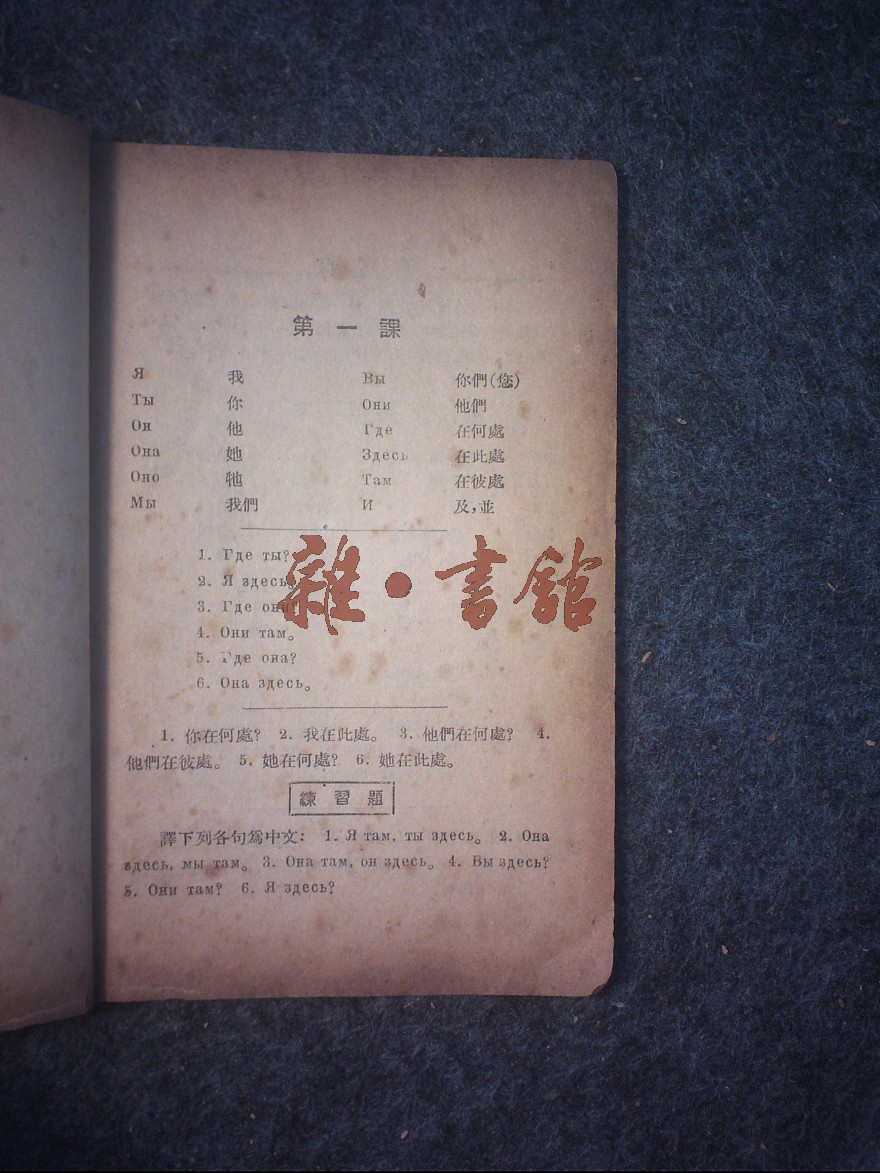 第一課
Я 我 Вы 你們(您)
Ты 你 Они 他們
Он 他 Где 在何處
Она 她 Здесь 在此處
Оно 牠 Там 在彼處
Мы 我們 И 及,並
1. Где ты?
2. Я здесь。
3. Где они?
4. Они там。
5. Где она?
6. Она здесь。
雜·書館
1. 你在何處? 2. 我在此處。 3. 他們在何處? 4.
他們在彼處。 5. 她在何處? 6. 她在此處。
練習題
譯下列各句爲中文: 1. Я там, ты здесь。 2. Она
здесь, мы там。 3. Она там, он здесь。 4. Вы здесь?
5. Они там? 6. Я здесь?